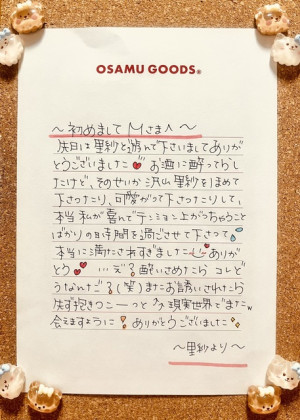 OSAMU GOODS®
～初めまして Mさまへ～
先日は里紗と遊んで下さいましてありが
とうございました お酒に酔ってらし
たけど、そのせいか沢山里紗をほめて
下さったり、可愛がって下さったりして、
本当私が喜んでテンション上がっちゃうこと
ばかりの時間を過ごさせて下さって
本当に満たされすぎました ありが
とう …え? 酔いさめたら コレど
うなんだろ(笑)またお誘いされたら
先ず抱きつこーっと 現実世界でまたw
会えますように ありがとうございました
～里紗より～